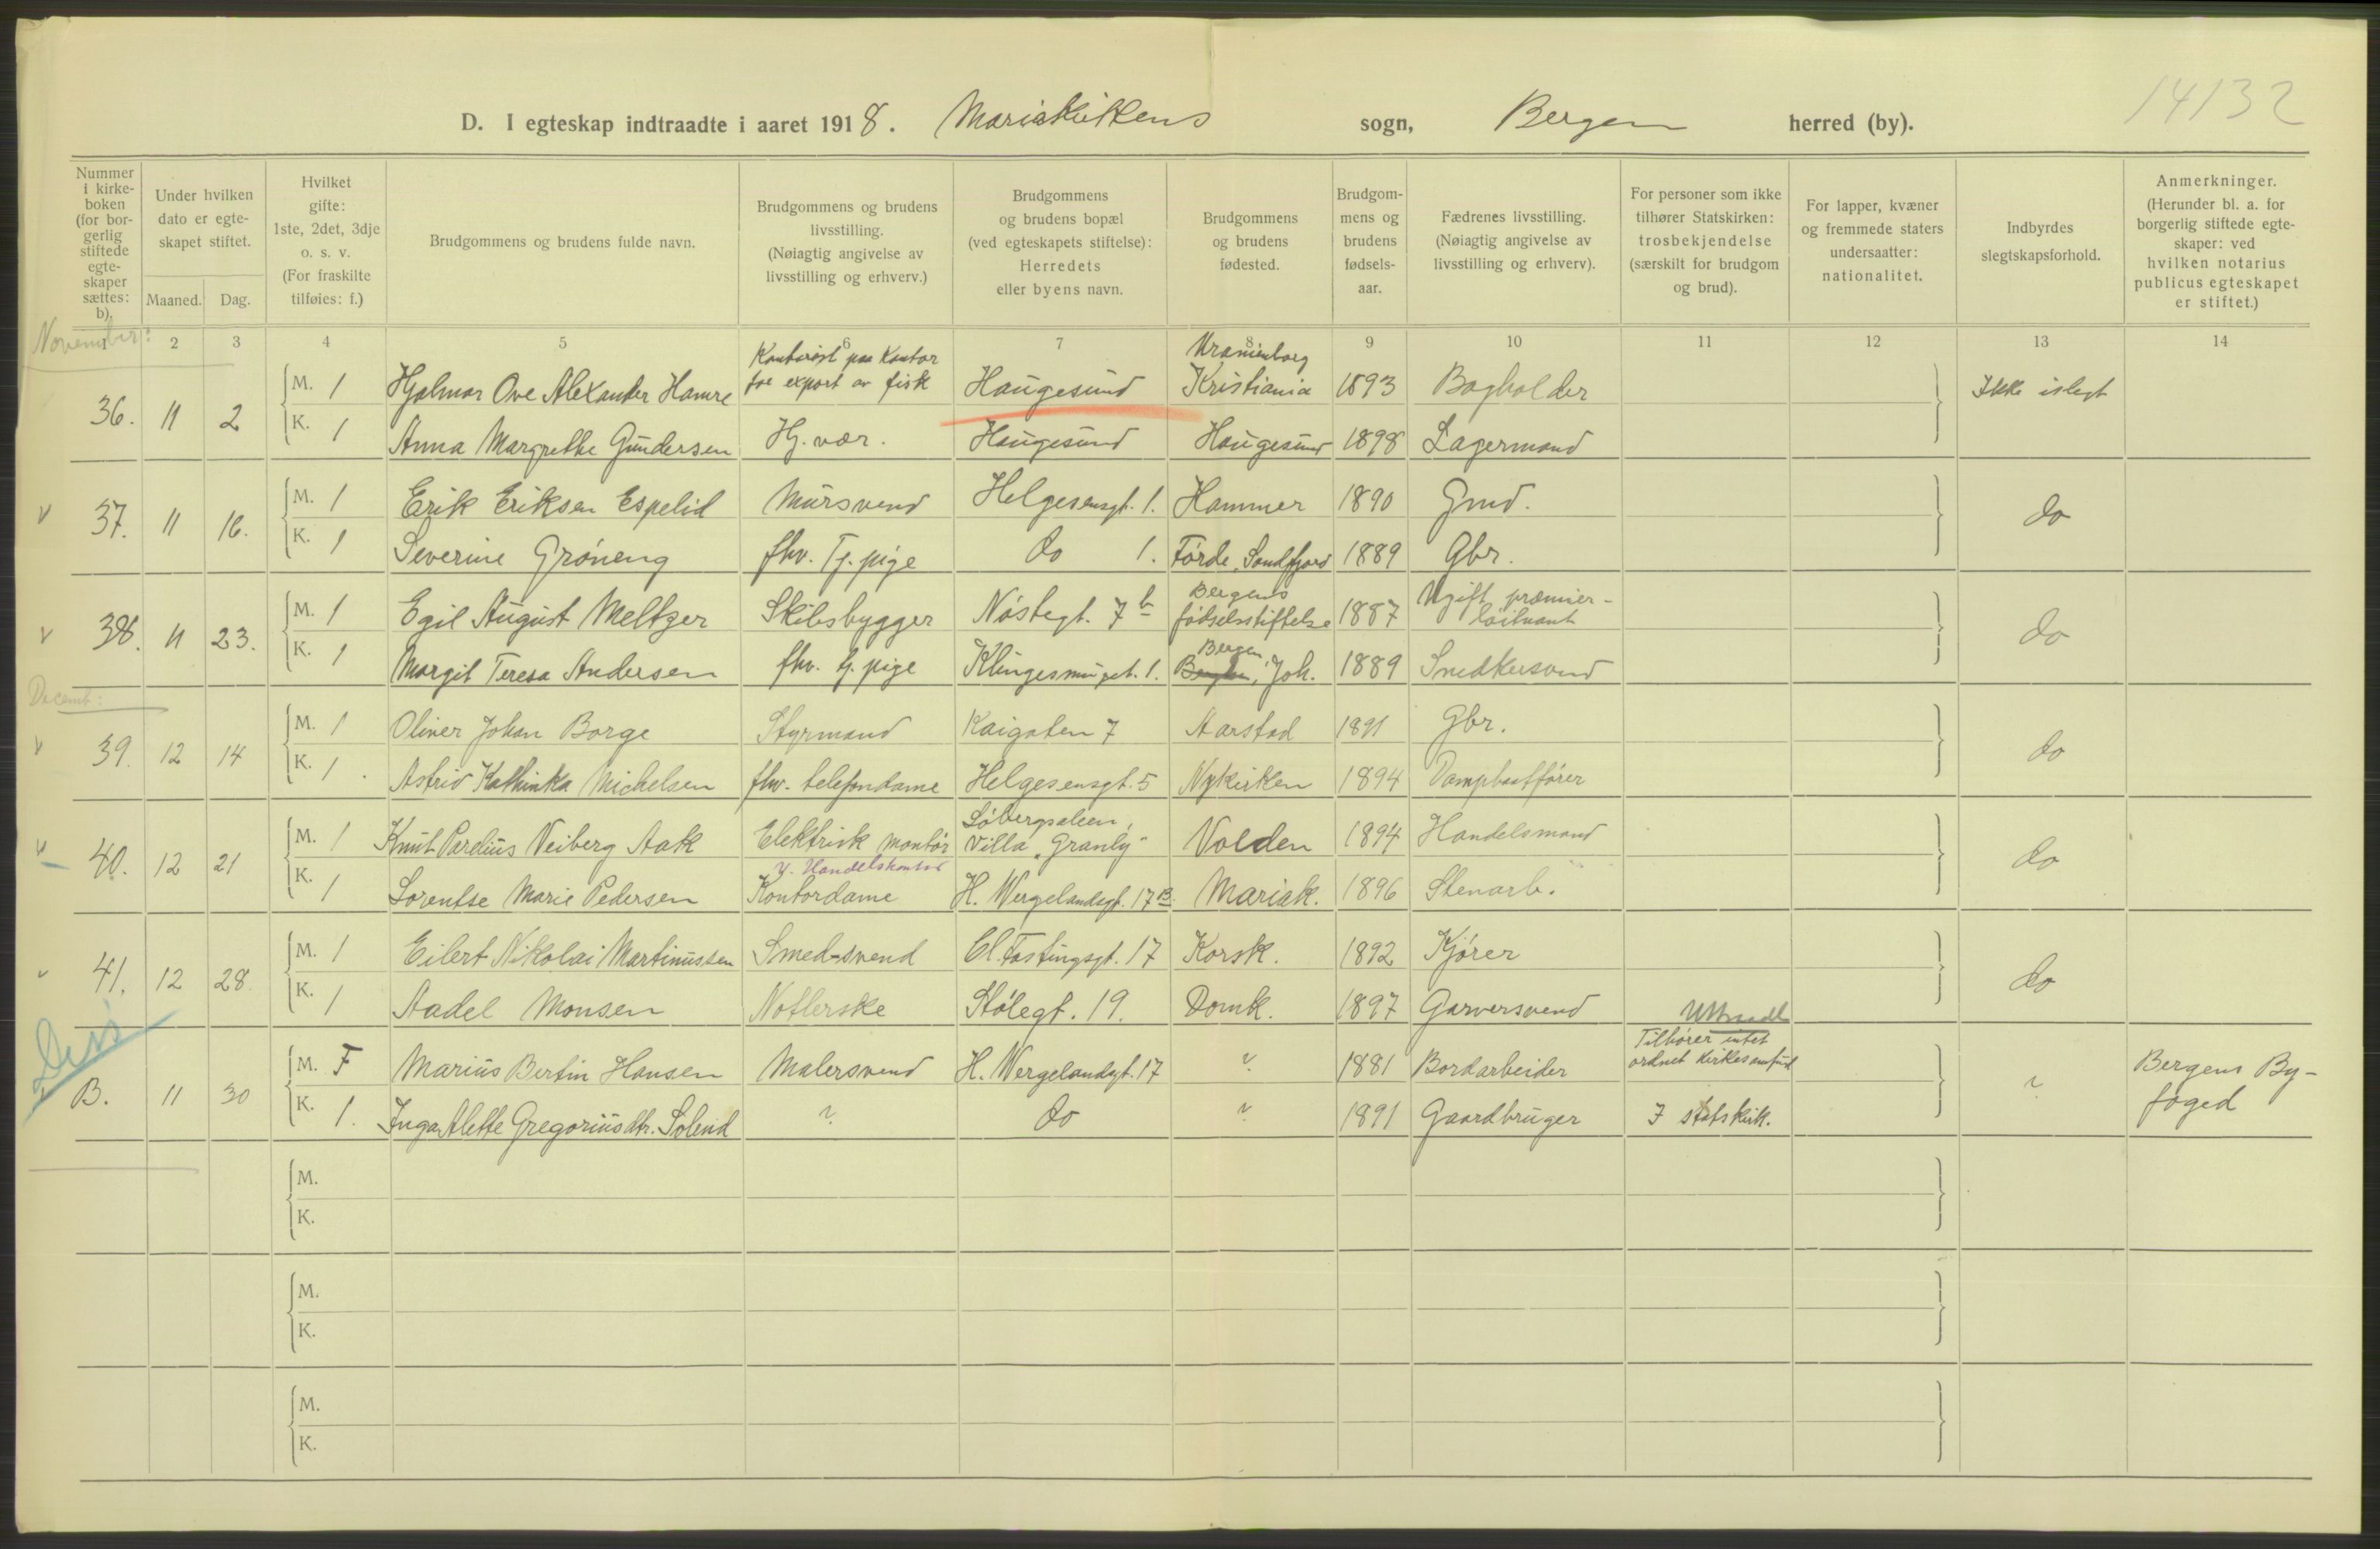 14132
D. I egteskap indtraadte i aaret 1918. Mariakirkens sogn, Bergen herred (by).
Nummer i kirkeboken (for borgerlig stiftede egteskaper sættes: b).
Under hvilken dato er egteskapet stiftet.
Maaned. Dag.
Hvilket gifte: 1ste, 2det, 3dje o. s. v. (For fraskilte tilføies: f.)
Brudgommens og brudens fulde navn.
Brudgommens og brudens livsstilling. (Nøiagtig angivelse av livsstilling og erhverv.)
Brudgommens og brudens bopæl (ved egteskapets stiftelse): Herredets eller byens navn.
Brudgommens og brudens fødested.
Brudgommens og brudens fødselsaar.
Fædrenes livsstilling. (Nøiagtig angivelse av livsstilling og erhverv).
For personer som ikke tilhører Statskirken: trosbekjendelse (særskilt for brudgom og brud).
For lapper, kvæner og fremmede staters undersaatter: nationalitet.
Indbyrdes slegtskapsforhold.
Anmerkninger. (Herunder bl. a. for borgerlig stiftede egteskaper: ved hvilken notarius publicus egteskapet er stiftet.)
1 2 3 4 5 6 7 8 9 10 11 12 13 14
November:
36. 11 2 M. 1 Hjalmar Ove Alexander Hamre Kontorist paa Kontor for export av fisk Haugesund Uranienborg Kristiania 1893 Bogholder Ikke i slegt
K. 1 Anna Margrethe Gundersen Hj. vær. Haugesund Haugesund 1898 Lagermand
37. 11 16. M. 1 Erik Eriksen Espelid Mursvend Helgesensgt. 1. Hammer 1890 Gmd. do
K. 1 Severine Gróneng fhv. Tj. pige do 1. Förde, Sondfjord 1889 Gbr.
38. 11 23. M. 1 Egil August Meltzer Skibsbygger Nóstegt. 7b Bergens fódselsstiftelse 1887 Ugift premier-lóitnant do
K. 1 Margit Teresa Andersen fhv. tj. pige Klingesmuget. 1. Bergen, Joh. 1889 Snedkersvend
Decemb:
39. 12 14 M. 1 Oliver Johan Borge Styrmand Kaigaten 7 Aarstad 1891 Gbr. do
K. 1. Astrid Kathinka Michelsen fhv. telefondame Helgesensgt. 5 Nykirken 1894 Dampbaatfórer
40. 12 21 M. 1 Knut Parelius Veiberg Aak Elektrisk montór Lóbergsaleen, Villa "Granly" Volden 1894 Handelsmand do
K. 1 Lorentse Marie Pedersen Handelskontor Kontordame H. Wergelandsgt. 17B. Mariak. 1896 Stenarb.
41. 12 28. M. 1 Eilert Nikolai Martinussen Smed-svend Cl. Fastingsgt. 17 Korsk. 1892 Kjórer do
K. 1 Aadel Monsen Notlerske Stólegt. 19. Domk. 1897 Garversvend
B. 11 30 M. F Marius Bertin Hansen Malersvend H. Wergelandsgt. 17 ? 1881 Bordarbeider Tilhórer intet ordnet kirkesamfund ? Bergens By-foged
K. 1. Inga Alette Gregoriusdtr. Solend ? do ? 1891 Gaardbruger I statskirk.
M.
K.
M.
K.
M.
K.